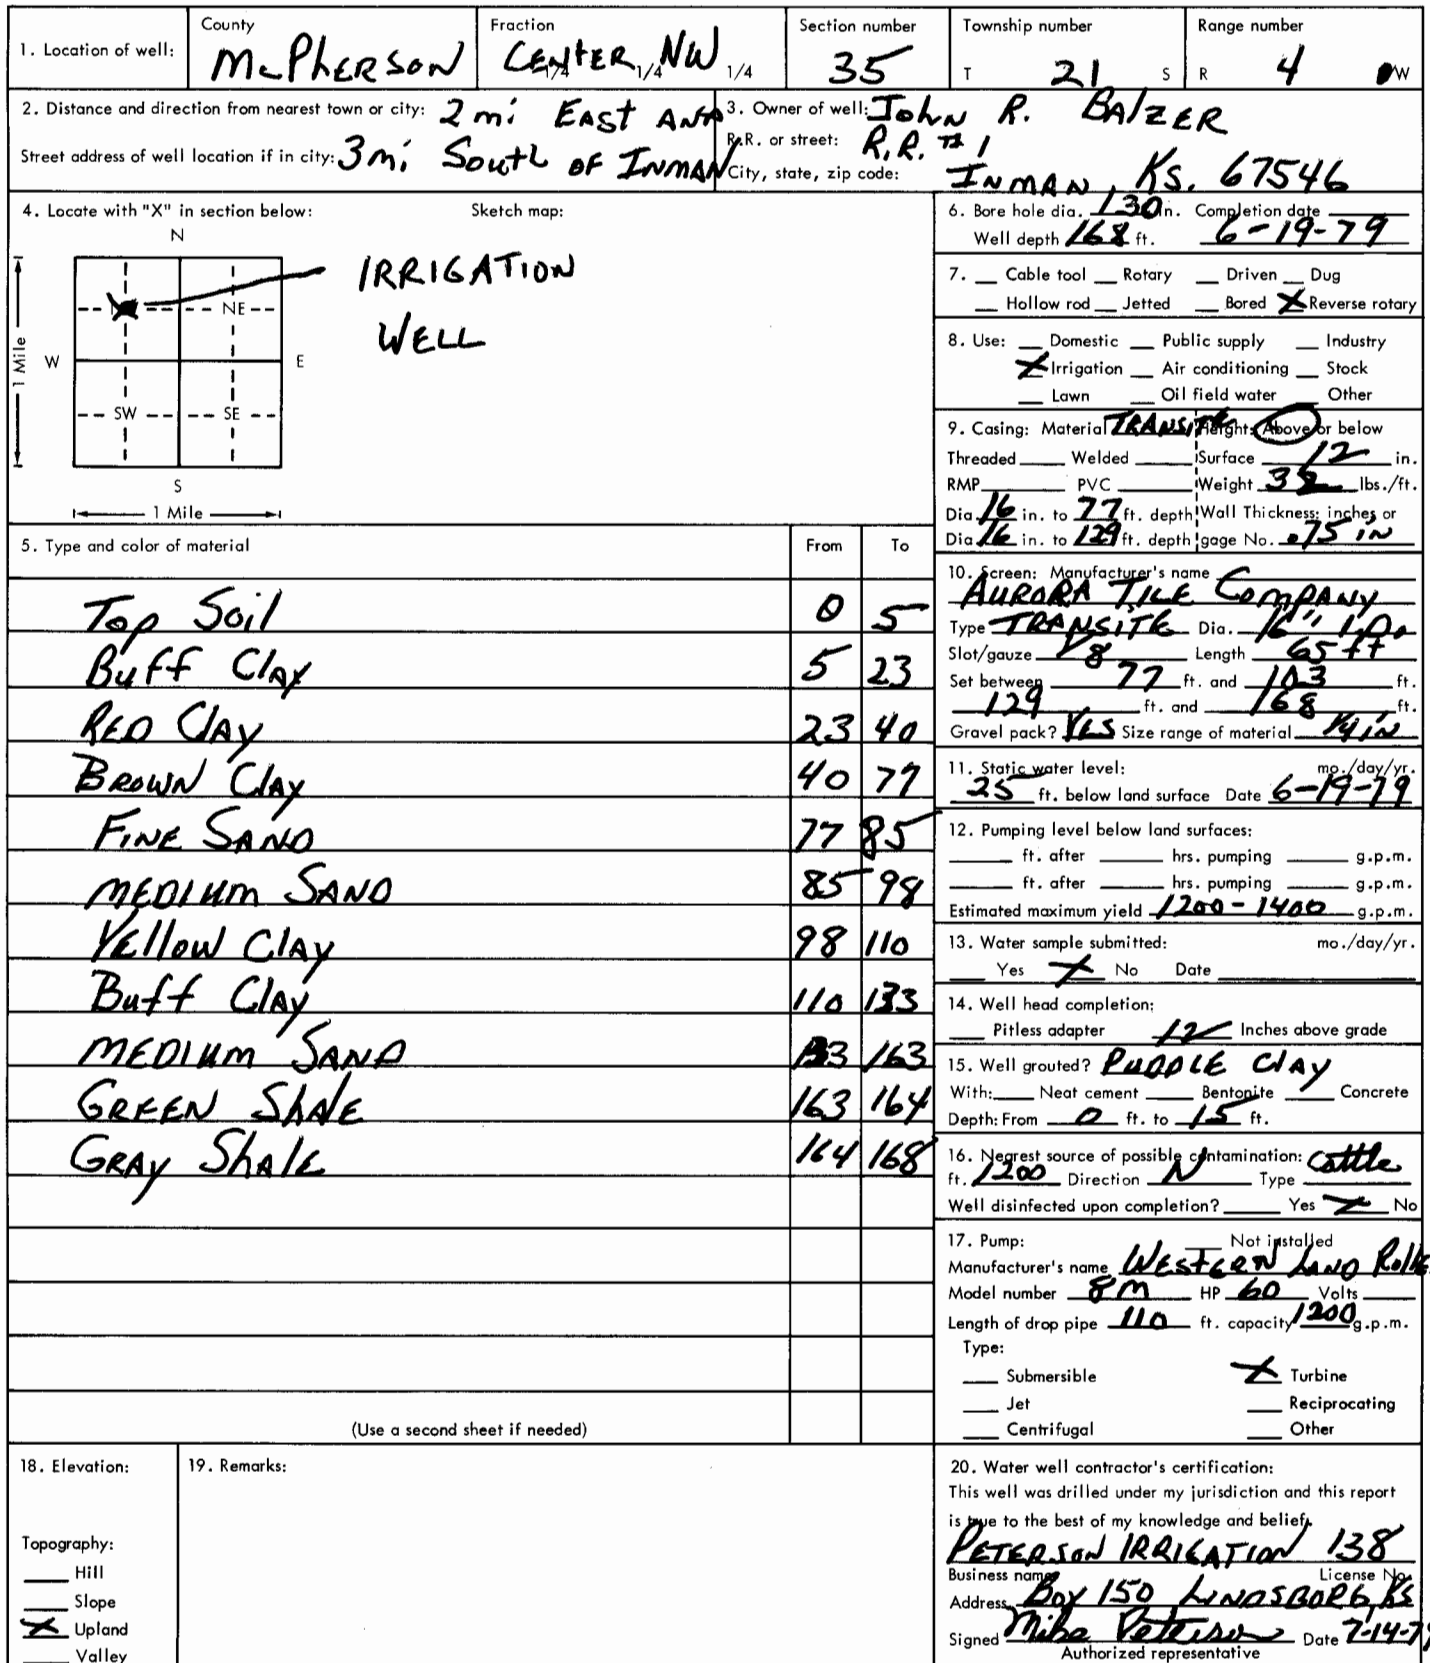 1. Location of well: County McPherson Fraction CENTER 1/4 NW 1/4 1/4 Section number 35 Township number T 21 S Range number R 4 W
2. Distance and direction from nearest town or city: 2 mi EAST AND
Street address of well location if in city: 3 mi South OF INMAN
3. Owner of well: John R. BAlZER
R.R. or street: R.R. #1
City, state, zip code: INMAN, Ks. 67546
4. Locate with "X" in section below: Sketch map:
N
NE
W E
SW SE
S
1 Mile
1 Mile
IRRIGATION
WELL
5. Type and color of material From To
Top Soil 0 5
Buff Clay 5 23
RED Clay 23 40
BROWN Clay 40 77
FINE SAND 77 85
MEDIUM SAND 85 98
Yellow Clay 98 110
Buff Clay 110 133
MEDIUM SAND 133 163
GREEN Shale 163 164
GRAY Shale 164 168
(Use a second sheet if needed)
6. Bore hole dia. 130 in. Completion date
Well depth 168 ft. 6-19-79
7. Cable tool Rotary Driven Dug
Hollow rod Jetted Bored X Reverse rotary
8. Use: Domestic Public supply Industry
X Irrigation Air conditioning Stock
Lawn Oil field water Other
9. Casing: Material TRANSITE Height: Above or below
Threaded Welded Surface 12 in.
RMP PVC Weight 32 lbs./ft.
Dia. 16 in. to 77 ft. depth Wall Thickness: inches or
Dia. 16 in. to 129 ft. depth gage No. .75 in
10. Screen: Manufacturer's name
AURORA TILE COMPANY
Type TRANSITE Dia. 16" I.D.
Slot/gauze 1/8 Length 65 ft
Set between 77 ft. and 103 ft.
129 ft. and 168 ft.
Gravel pack? YES Size range of material 1/4 in
11. Static water level: mo./day/yr.
25 ft. below land surface Date 6-19-79
12. Pumping level below land surfaces:
ft. after hrs. pumping g.p.m.
ft. after hrs. pumping g.p.m.
Estimated maximum yield 1200-1400 g.p.m.
13. Water sample submitted: mo./day/yr.
Yes X No Date
14. Well head completion:
Pitless adapter 12 Inches above grade
15. Well grouted? PUDDLE Clay
With: Neat cement Bentonite Concrete
Depth: From 0 ft. to 15 ft.
16. Nearest source of possible contamination: Cattle
ft. 1200 Direction N Type
Well disinfected upon completion? Yes X No
17. Pump: Not installed
Manufacturer's name WESTERN LAND Roller
Model number 8M HP 60 Volts
Length of drop pipe 110 ft. capacity 1200 g.p.m.
Type:
Submersible X Turbine
Jet Reciprocating
Centrifugal Other
18. Elevation:
Topography:
Hill
Slope
X Upland
Valley
19. Remarks:
20. Water well contractor's certification:
This well was drilled under my jurisdiction and this report
is true to the best of my knowledge and belief.
PETERSON IRRIGATION 138
Business name License No.
Address Box 150 LINDSBORG, KS
Signed Mike Peterson Date 7-14-79
Authorized representative